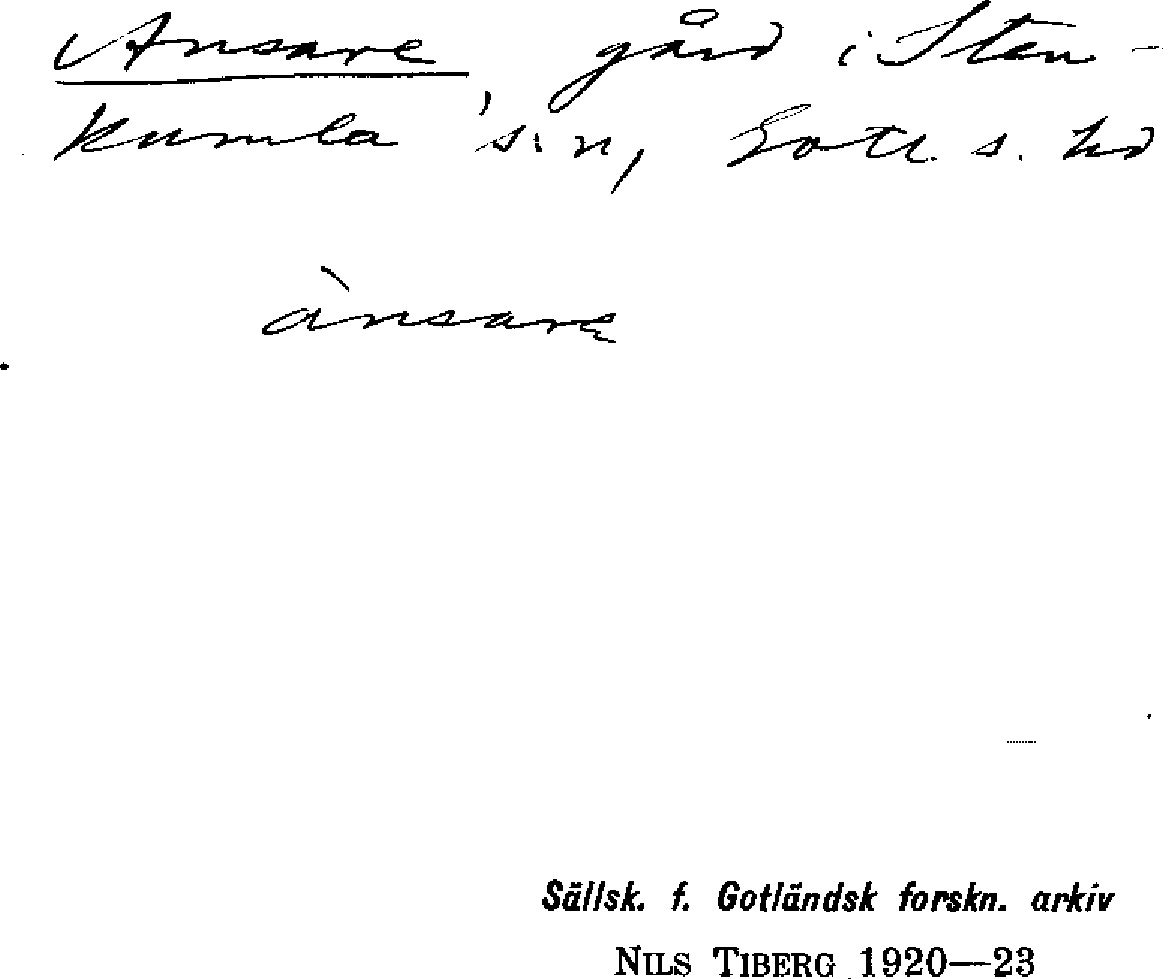 Ansare, gård i Sten-
kumla s:n, Gotl. s. hd
ànsare
Sällsk. f. Gotländsk forskn. arkiv
NILS TIBERG 1920—23